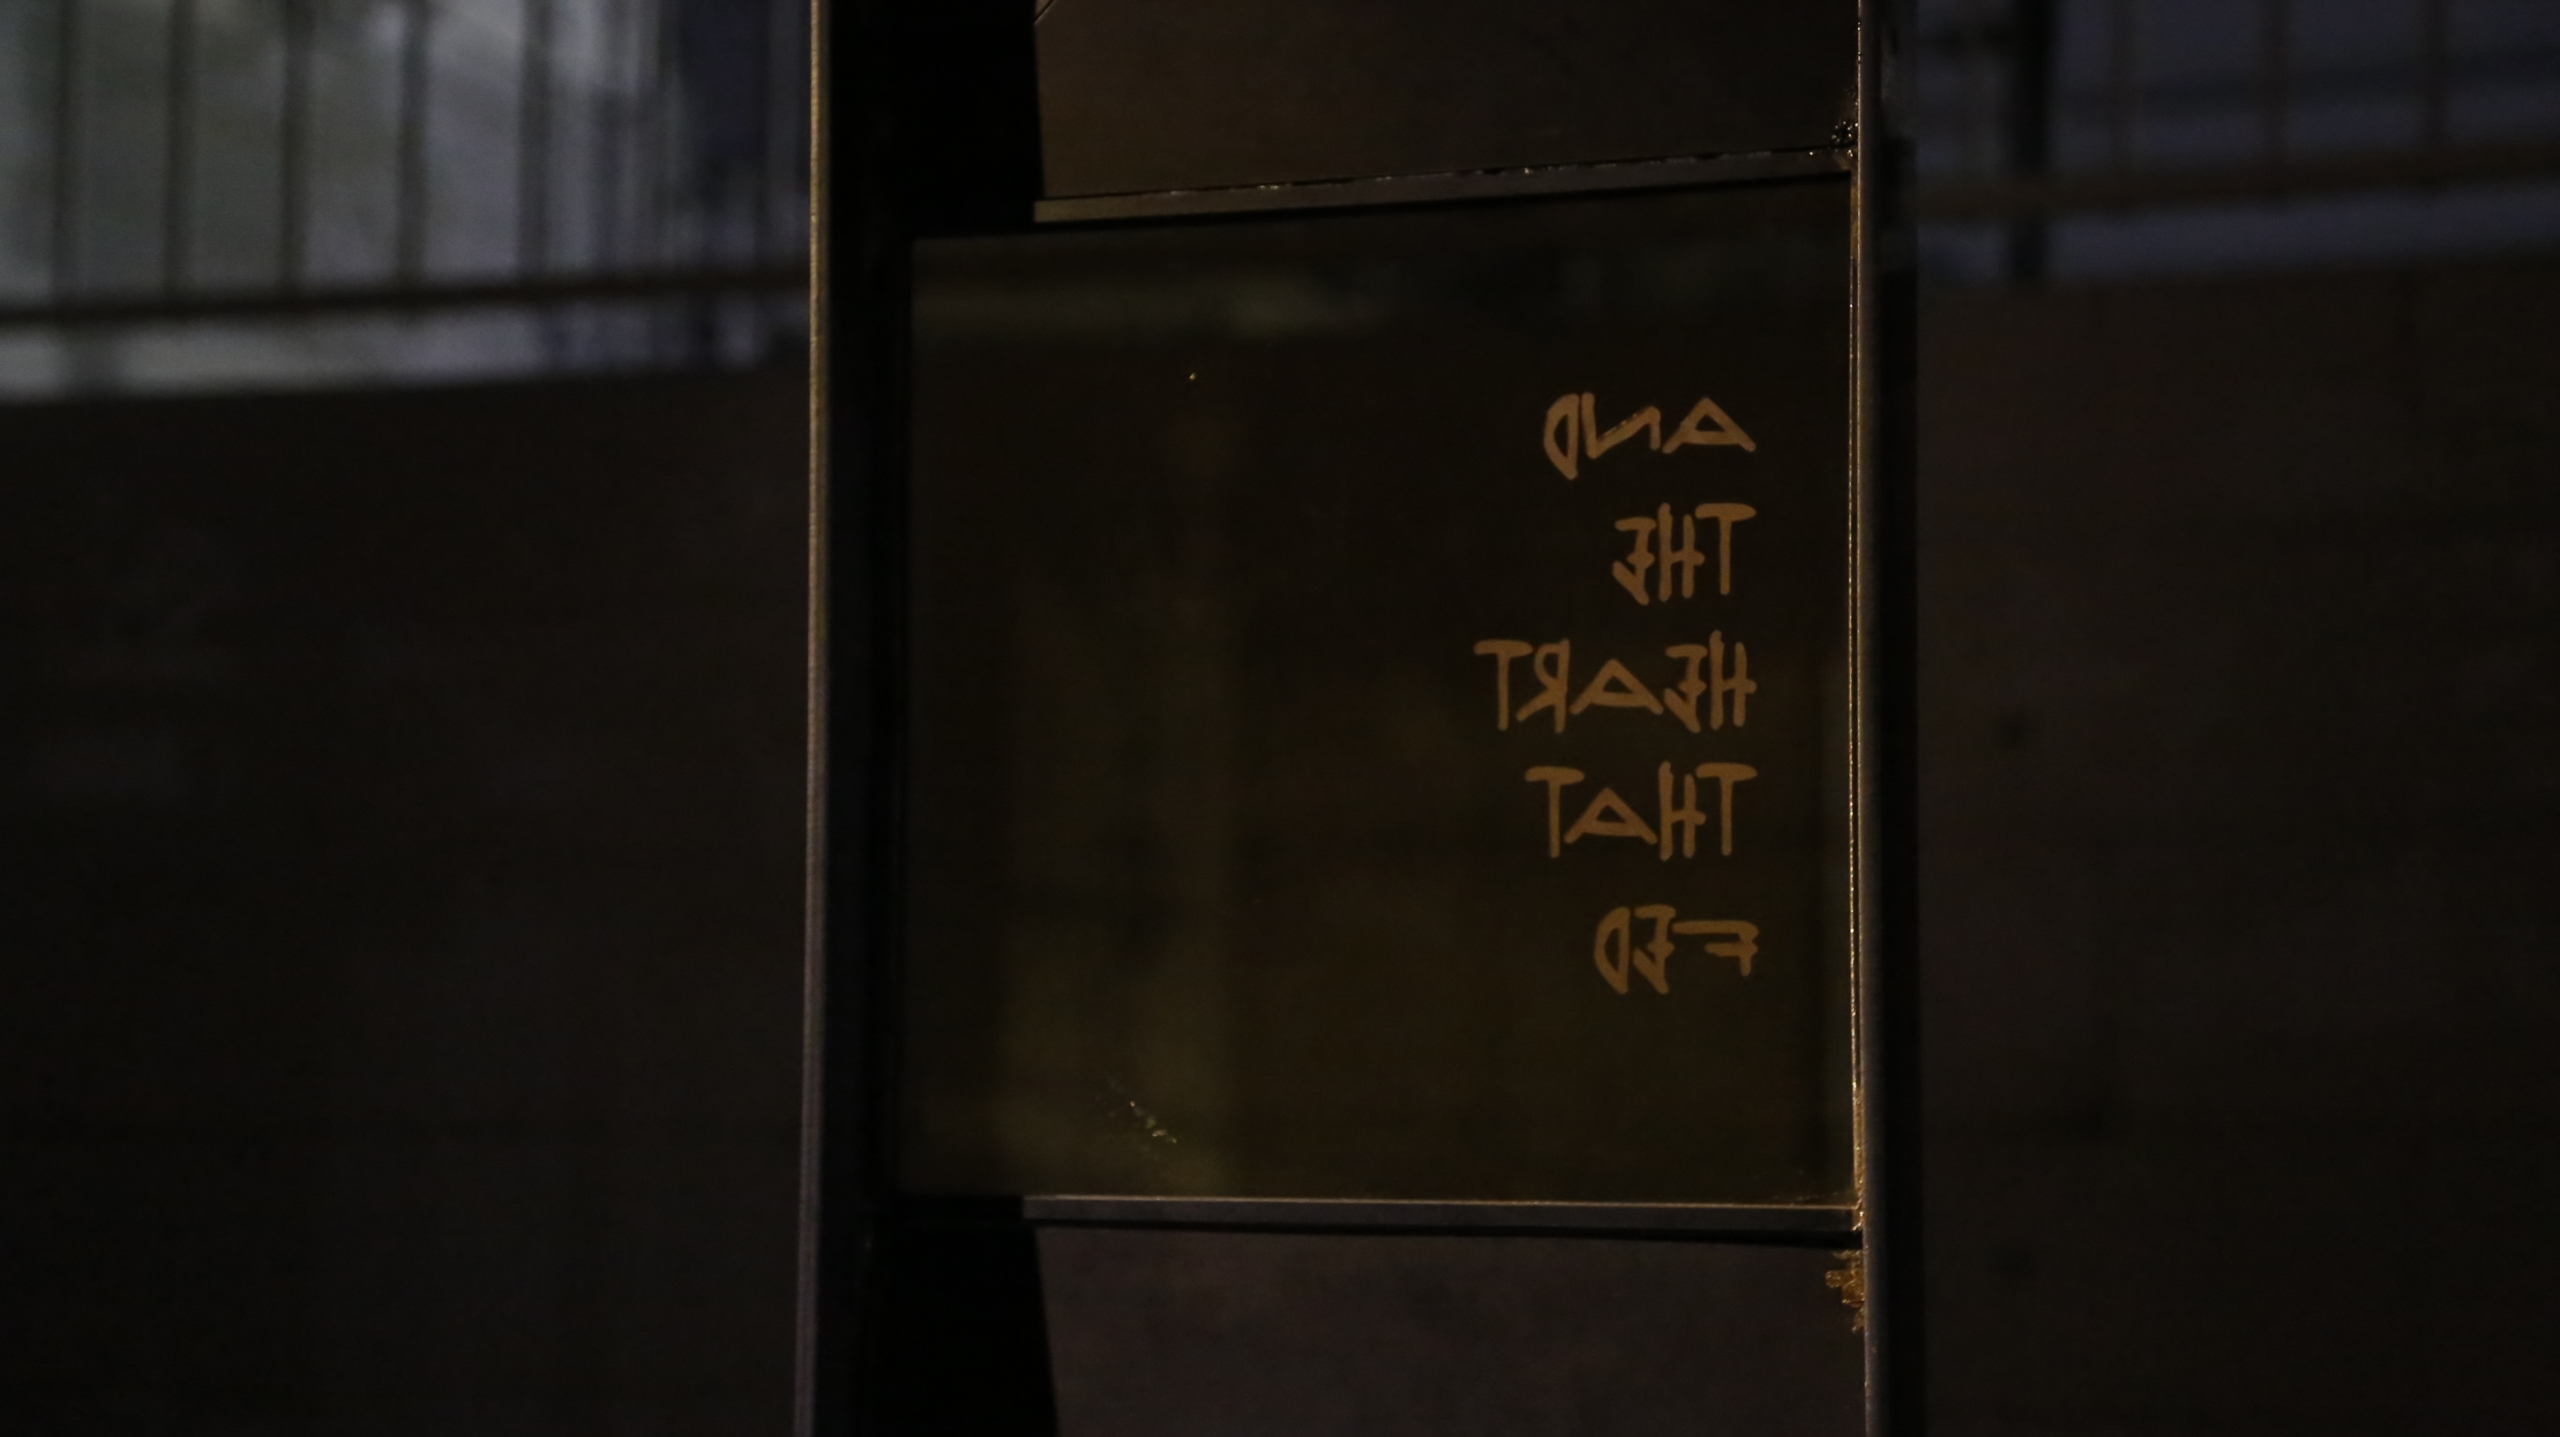 AND
THE
HEART
THAT
FED